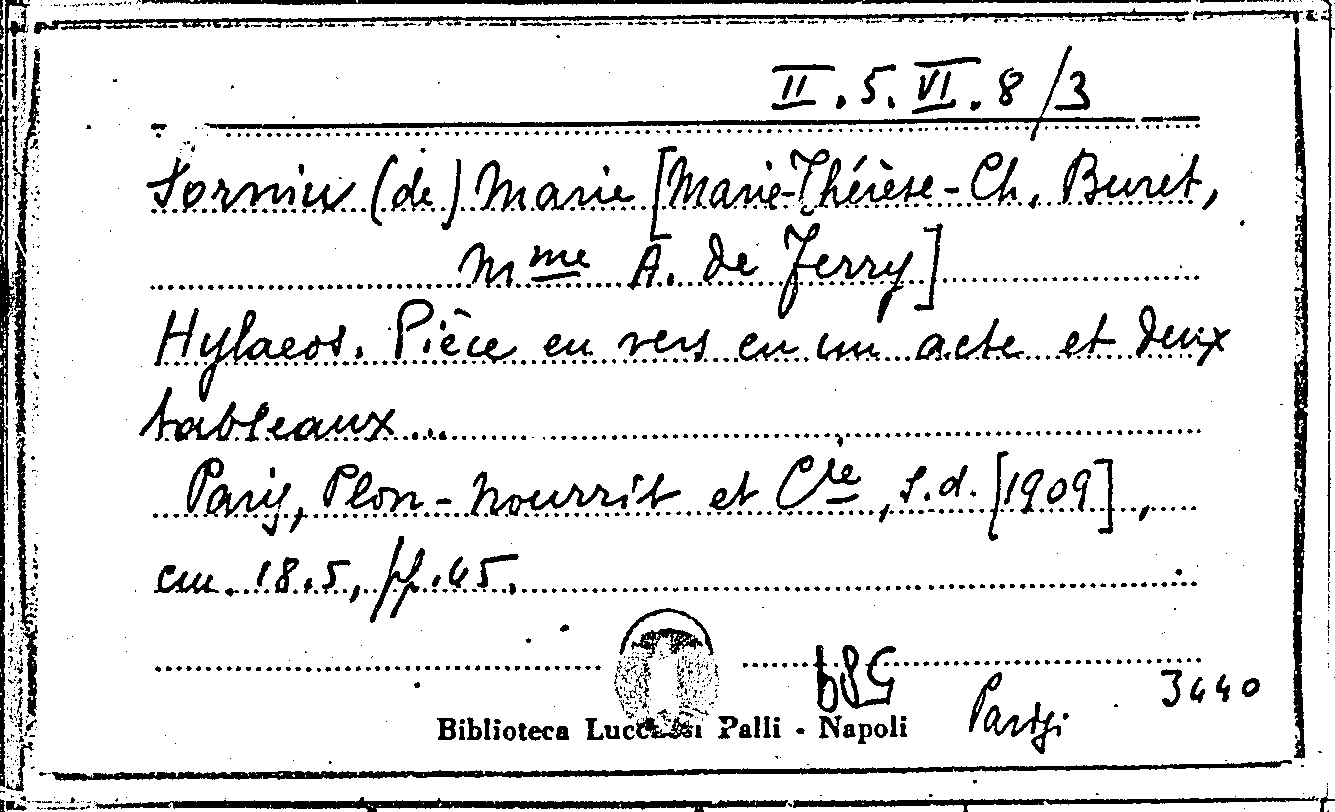 II.5.VI.8/3
Sornin (de) Marie [Marie-Thérèse-Ch. Buret,
Mme A. de Ferry]
Hylaeos. Pièce en vers en un acte et deux
tableaux...
Paris, Plon-Nourrit et Cie, s.d. [1909],
cm. 18.5, pp. 45.
Biblioteca Lucchesi Palli - Napoli
Parigi
3440